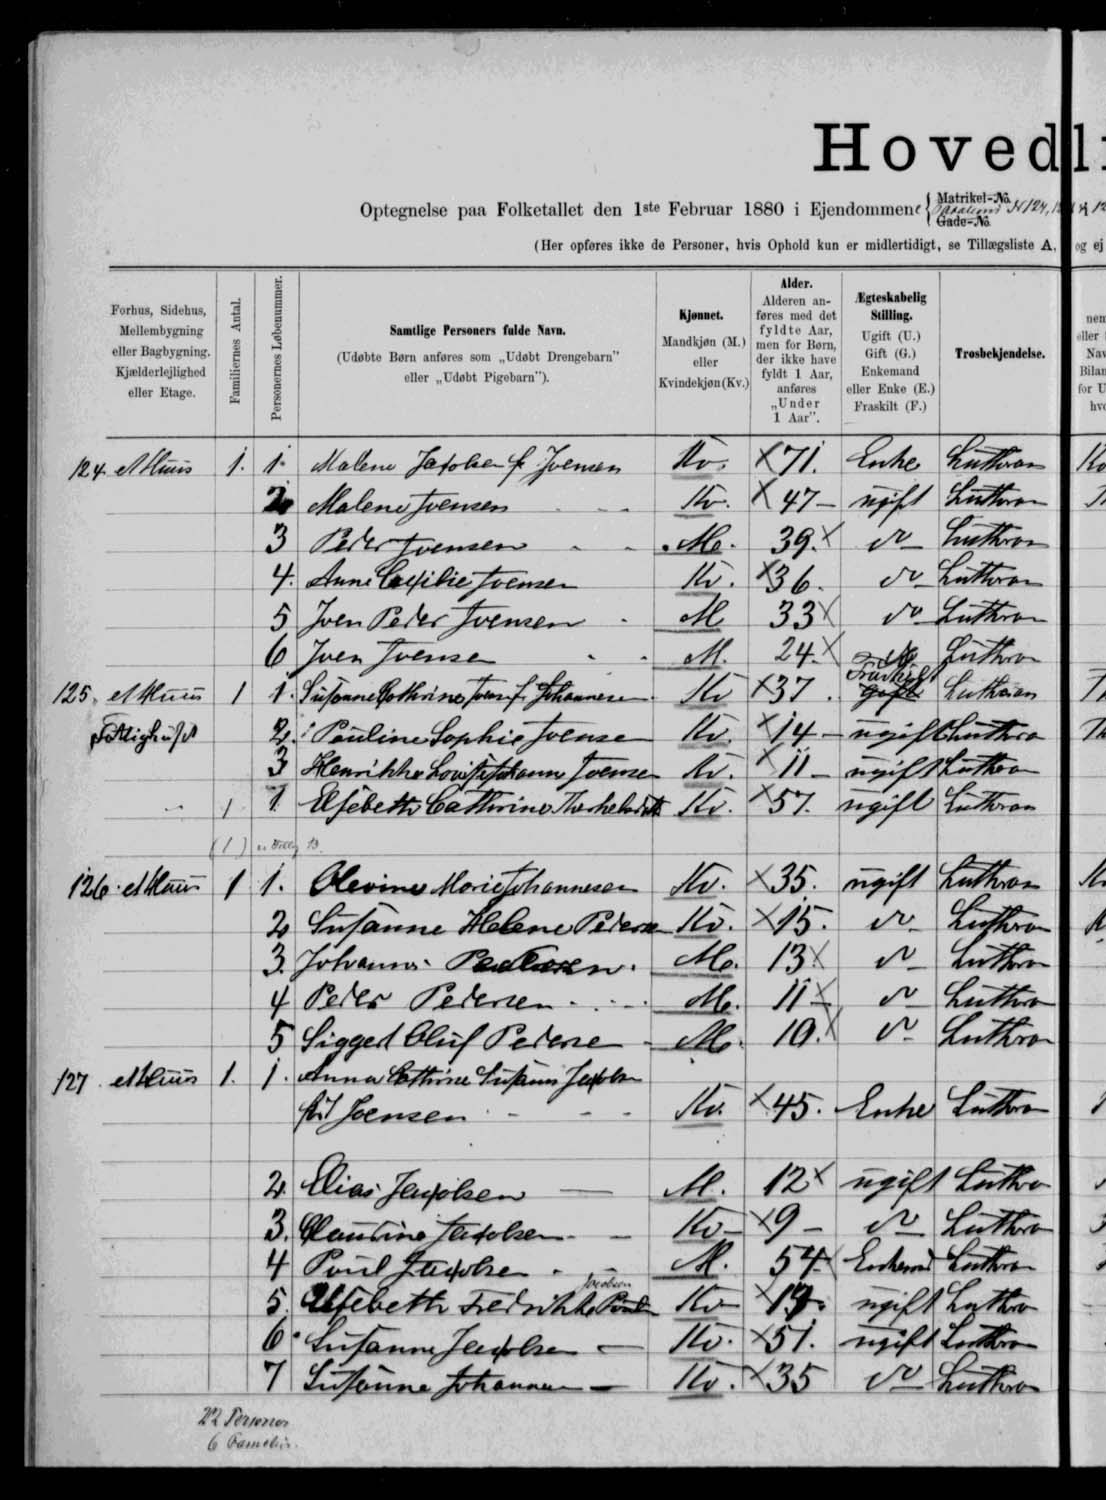 Hovedli
Optegnelse paa Folketallet den 1ste Februar 1880 i Ejendommene { Matrikel-No. N 124, 12
Gade-No.
(Her opføres ikke de Personer, hvis Ophold kun er midlertidigt, se Tillægsliste A, og ej
Forhus, Sidehus, Mellembygning eller Bagbygning. Kjælderlejlighed eller Etage.
Familiernes Antal.
Personernes Løbenummer.
Samtlige Personers fulde Navn.
(Udøbte Børn anføres som „Udøbt Drengebarn“ eller „Udøbt Pigebarn“).
Kjønnet.
Mandkjøn (M.) eller Kvindekjøn (Kv.)
Alder.
Alderen anføres med det fyldte Aar, men for Børn, der ikke have fyldt 1 Aar, anføres „Under 1 Aar“.
Ægteskabelig Stilling.
Ugift (U.) Gift (G.) Enkemand eller Enke (E.) Fraskilt (F.)
Trosbekjendelse.
124. et Huus 1. 1. Malene Jacobsen f. Joensen Kv. X 71. Enke Luthran
2 Malene Joensen Kv. X 47 – ugift Luthran
3 Peder Joensen M. 39. X do Luthran
4. Anne Cecilie Joensen Kv. X 36. do Luthran
5 Joen Peder Joensen M 33 X do Luthran
6 Joen Joensen M. 24. X do Luthran
125. et Huus 1 1. Susanne Cathrine Joens f. Johannesen Kv X 37. gift Fraskilt Luthran
Fattighuset 2. Pauline Sophie Joensen Kv. X 14 – ugift Luthran
3 Henrikke Lovise Johanne Joensen Kv. X 11 – ugift Luthran
" 1 1. Elsebeth Cathrine Kv. X 57. ugift Luthran
(1)
126. et Huus 1 1. Olevine Marie Johannesen Kv. X 35. ugift Luthran
2 Susanne Helene Pedersen Kv. X 15. do Luthran
3. Johannes Pedersen. M. 13 X do Luthran
4 Peder Pedersen M. 11 X do Luthran
5 Siggert Oluf Pedersen M. 10. X do Luthran
127. et Huus 1. 1. Anna Cathrine Susanne Jacobsen
født Joensen Kv. X 45. Enke Luthran
2. Elias Jacobsen M. 12 X ugift Luthran
3. Claudine Jacobsen Kv – X 9 – do Luthran
4 Poul Jacobsen M. 54 X Enkemd Luthran
Jacobsen
5. Elsebeth Fredrikke Kv X 19. ugift Luthran
6. Susanne Jacobsen Kv. X 51. ugift Luthran
7 Susanne Johannesen Kv. X 35 do Luthran
22 Personer
6 Familier.